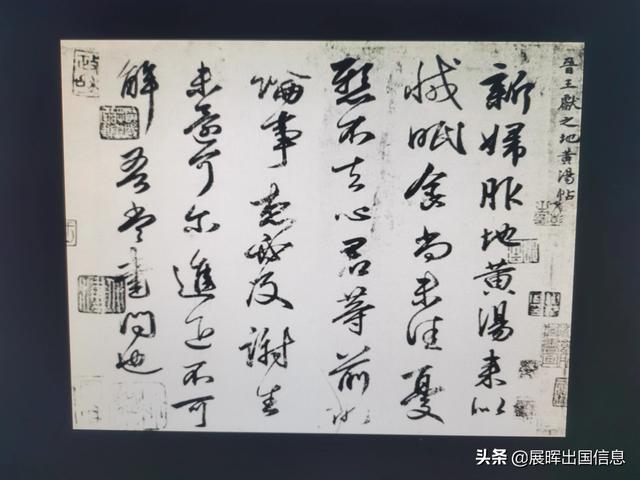 晉王獻之地黄湯帖
新婦服地黄湯来似
減眠食尚未佳憂
懸不去心君等前所
論事想必及謝生
未還可尔進退不可
解吾當書問也
头条 @展晖出国信息